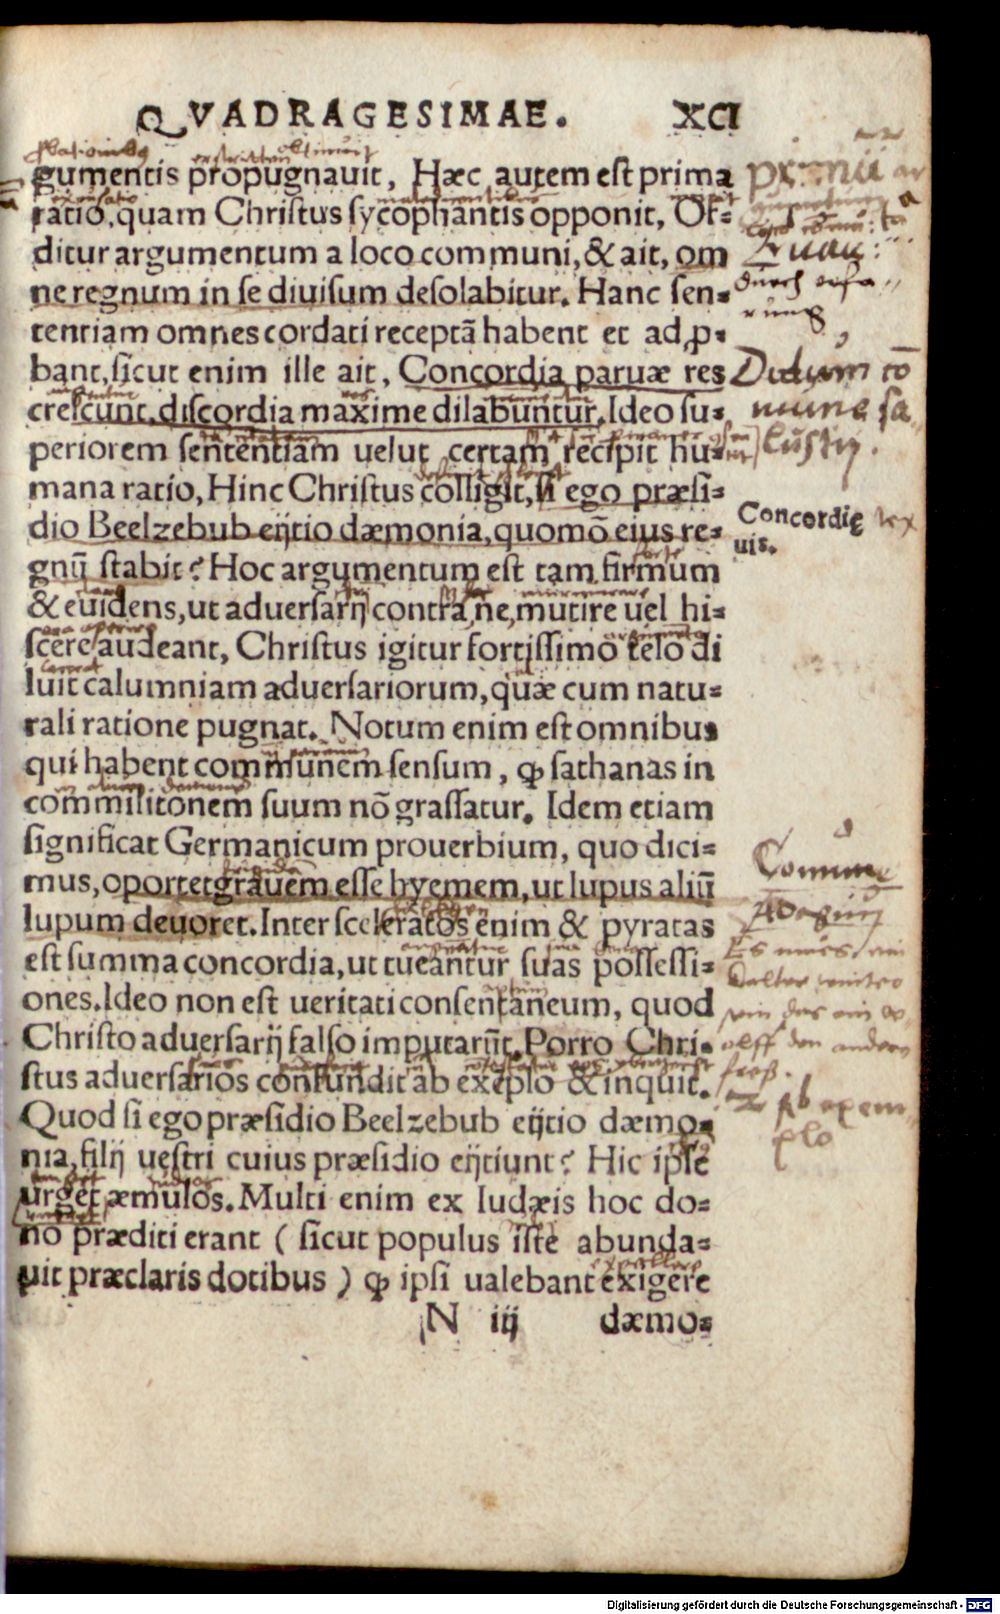 QVADRAGESIMAE. XCI
gumentis propugnauit, Hæc autem est prima
ratio, quam Christus sycophantis opponit, Or=
ditur argumentum a loco communi, & ait, om
ne regnum in se diuisum desolabitur. Hanc sen=
tentiam omnes cordati receptā habent et ad p=
bant, sicut enim ille ait, Concordia paruæ res
crescunt, discordia maxime dilabuntur. Ideo su=
periorem sententiam uelut certam recipit hu=
mana ratio, Hinc Christus colligit, si ego præsi=
dio Beelzebub eijtio dæmonia, quomō eius re=
gnū stabit? Hoc argumentum est tam firmum
& euidens, ut aduersarij contra, ne, mutire uel hi=
scere audeant, Christus igitur fortissimo telo di
luit calumniam aduersariorum, quæ cum natu=
rali ratione pugnat. Notum enim est omnibus
qui habent communem sensum, ꝙ sathanas in
commilitonem suum nō grassatur. Idem etiam
significat Germanicum prouerbium, quo dici=
mus, oportet grauem esse hyemem, ut lupus aliū
lupum deuoret. Inter sceleratos enim & pyratas
est summa concordia, ut tueantur suas possessi=
ones. Ideo non est ueritati consentaneum, quod
Christo aduersarij falso imputarūt. Porro Chri=
stus aduersarios confundit ab exēplo & inquit.
Quod si ego præsidio Beelzebub eijtio dæmo=
nia, filij uestri cuius præsidio eijtiunt? Hic ipse
urget æmulos. Multi enim ex Iudæis hoc do=
no præditi erant ( sicut populus iste abunda=
uit præclaris dotibus ) ꝙ ipsi ualebant exigere
N iij dæmo=
durch erfa
rung
Dictum cō
mune sa
lustij.
Concordię
uis.
Comune
Adagiū
Es mus ein
kalter winter
sein das ein w
olff den andern
fress.
Ab exem
plo